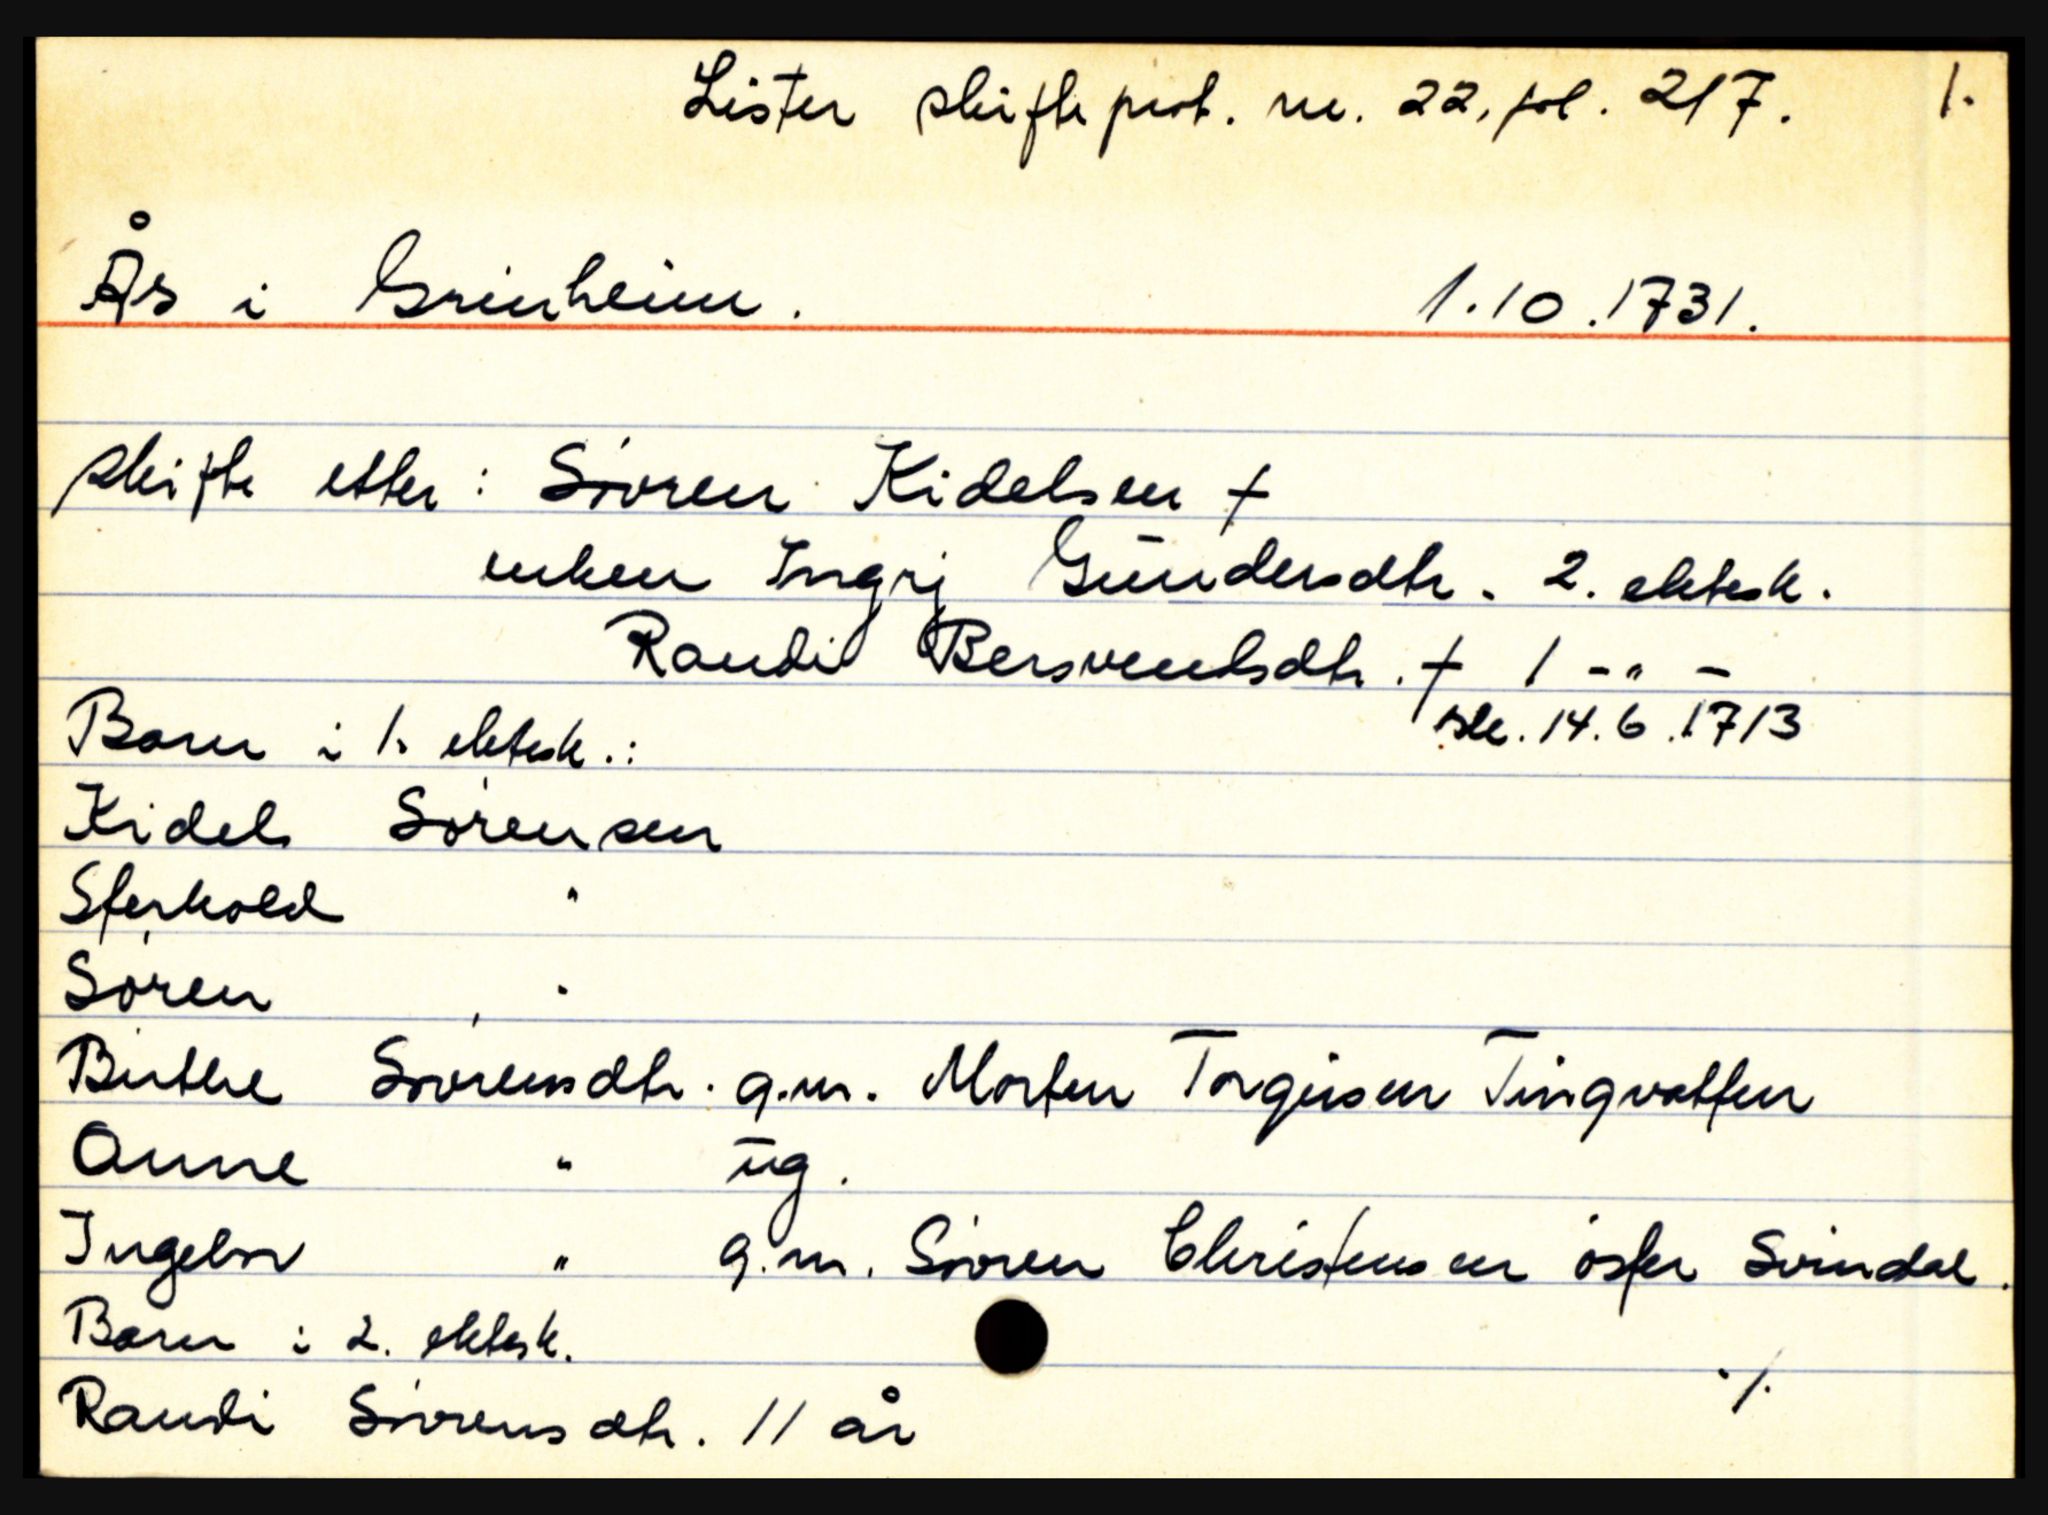 Lister skifteprot. nr. 22, fol. 217. 1.
Ås i Grinheim. 1.10.1731.
skifte etter: Sóren Kidelsen +
enken Ingrj Gundersdtr. 2. ektesk.
Randi Bersvendsdtr. + 1 -"-
sk. 14.6.1713
Barn i 1. ektesk.:
Kidel Sórensen
Sterkold "
Sóren "
Birthe Sórensdtr. g.m. Morten Torgiesen Tingvatten
Anne " ug.
Ingebor " g.m. Sóren Christensen óster Svindal.
Barn i 2. ektesk.
Randi Sórensdtr. 11 år ./.